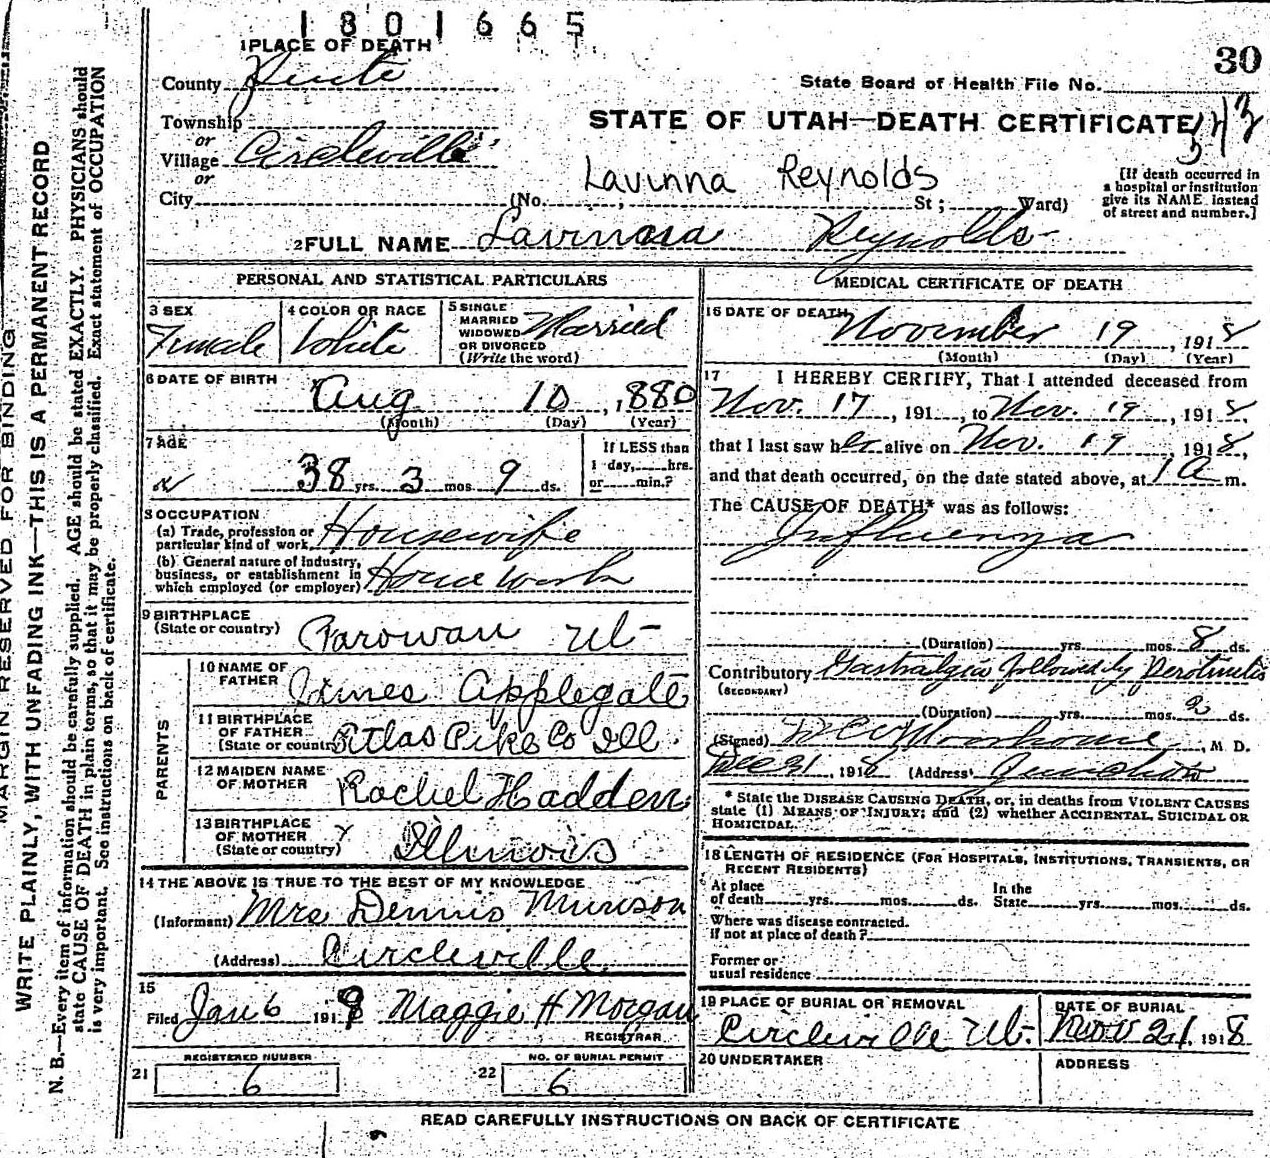 1801665
30
1 PLACE OF DEATH
County Piute
State Board of Health File No.
Township
STATE OF UTAH—DEATH CERTIFICATE
or
Village Circleville
or
Lavinna Reynolds
[If death occurred in a hospital or institution give its NAME instead of street and number.]
City (No. St; Ward)
2 FULL NAME Lavinna Reynolds
PERSONAL AND STATISTICAL PARTICULARS
3 SEX
Female
4 COLOR OR RACE
White
5 SINGLE
MARRIED
WIDOWED
OR DIVORCED
(Write the word)
Married
6 DATE OF BIRTH
Aug 10, 1880
(Month) (Day) (Year)
7 AGE
38 yrs. 3 mos. 9 ds.
If LESS than
1 day, hrs.
or min.?
8 OCCUPATION
(a) Trade, profession or
particular kind of work Housewife
(b) General nature of industry,
business, or establishment in
which employed (or employer) House work
9 BIRTHPLACE
(State or country) Parowan Ut-
PARENTS
10 NAME OF
FATHER James Applegate
11 BIRTHPLACE
OF FATHER
(State or country) Atlas Pike Co Ill.
12 MAIDEN NAME
OF MOTHER Rachel Hadden
13 BIRTHPLACE
OF MOTHER
(State or country) Illinois
14 THE ABOVE IS TRUE TO THE BEST OF MY KNOWLEDGE
(Informant) Mrs Dennis Munson
(Address) Circleville
15
Filed Jan 6 1919 Maggie H Morgan
REGISTRAR
REGISTERED NUMBER
21 6
NO. OF BURIAL PERMIT
22 6
MEDICAL CERTIFICATE OF DEATH
16 DATE OF DEATH
November 19, 1918
(Month) (Day) (Year)
17 I HEREBY CERTIFY, That I attended deceased from
Nov. 17, 191 , to Nov. 19, 1918
that I last saw her alive on Nov. 19 1918,
and that death occurred, on the date stated above, at 1 A m.
The CAUSE OF DEATH* was as follows:
Influenza
(Duration) yrs. mos. 8 ds.
Contributory Gastralgia followed by
(SECONDARY)
(Duration) yrs. mos. 2 ds.
(Signed) , M. D.
Dec 21, 1918 (Address) Junction
* State the DISEASE CAUSING DEATH, or, in deaths from VIOLENT CAUSES
state (1) MEANS OF INJURY; and (2) whether ACCIDENTAL, SUICIDAL OR
HOMICIDAL.
18 LENGTH OF RESIDENCE (FOR HOSPITALS, INSTITUTIONS, TRANSIENTS, OR
RECENT RESIDENTS)
At place
of death yrs. mos. ds.
In the
State yrs. mos. ds.
Where was disease contracted.
if not at place of death?
Former or
usual residence
19 PLACE OF BURIAL OR REMOVAL
Circleville Ut.
DATE OF BURIAL
Nov 21, 1918
20 UNDERTAKER
ADDRESS
READ CAREFULLY INSTRUCTIONS ON BACK OF CERTIFICATE
MARGIN RESERVED FOR BINDING
WRITE PLAINLY, WITH UNFADING INK—THIS IS A PERMANENT RECORD
N. B.—Every item of information should be carefully supplied. AGE should be stated EXACTLY. PHYSICIANS should
state CAUSE OF DEATH in plain terms, so that it may be properly classified. Exact statement of OCCUPATION
is very important. See instructions on back of certificate.